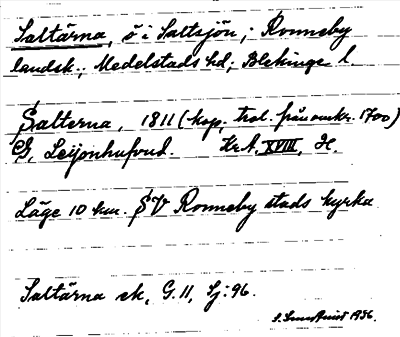 Saltärna, ö i Saltsjön; Ronneby
landsk.; Medelstads hd; Blekinge l.
Salterna, 1811 (kop, trol. från omkr. 1700)
G, Leijonhufvud. Kr.A. XVIII, H.
Läge 10 km. SV Ronneby stads kyrka
Saltärna ek, G.11, Sj:96.
1956.